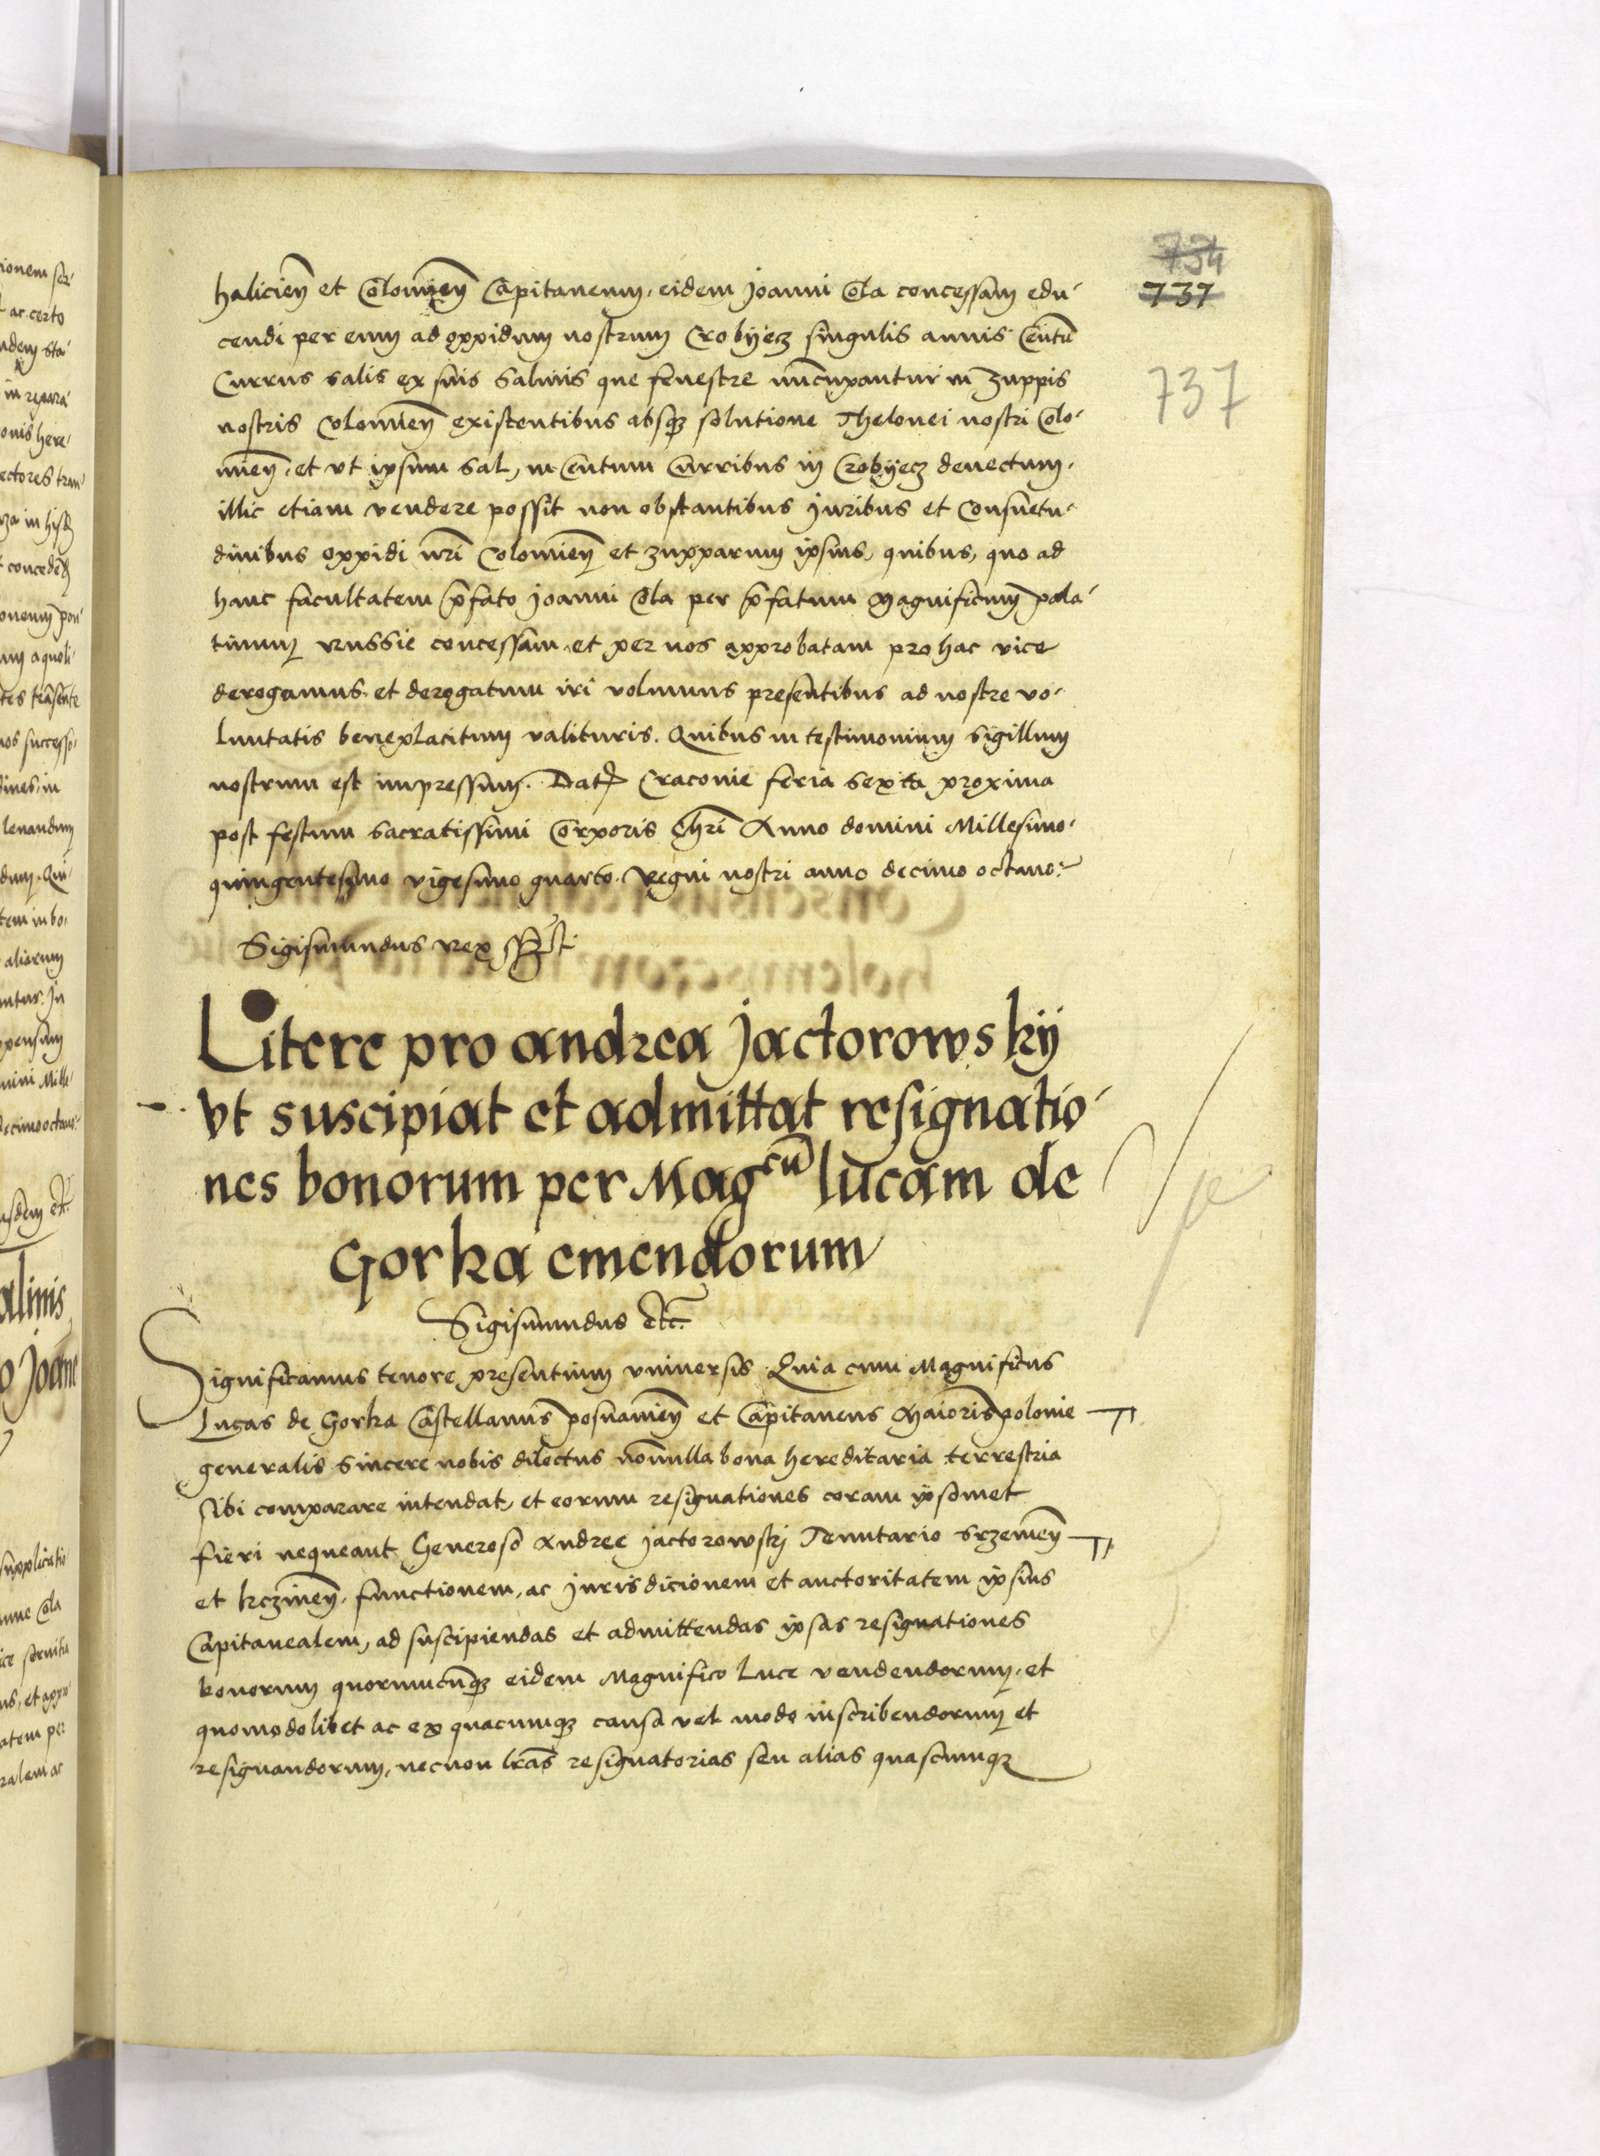 734
737
737
halicień et Colomień Capitaneum, eidem Joanni Cola concessam edu-
cendi per eum ad oppidum nostrum Crobÿecz singulis annis Centū
Currus salis ex suis Salinis que fenestre nuncupantur in zuppis
nostris Colomień existentibus absqꝫ solutione Thelonei nostri Colo-
mień, et vt ipsum sal, in Centum Curribus in Crobÿecz deuectum,
illic etiam vendere possit non obstantibus Juribus et Consuetu-
dinibus oppidi nrī Colomień et zupparum ipsius, quibus, quo ad
hanc facultatem p̄fato Joanni Cola per p̄fatum Magnificum pala-
tinum russie concessam, et per nos approbatam pro hac vice
derogamus, et derogatum iri volumus presentibus ad nostre vo-
luntatis beneplacitum valituris. Quibus in testimonium sigillum
nostrum est impressum. Dat Craconie feria sexta proxima
post festum sacratissimi Corporis Chrī Anno domini Millesimo-
quingentesimo vigesimo quarto. Regni nostri anno decimo octauo.
Sigismundus rex sst
Litere pro andrea Jactorowskÿ
vt suscipiat et admittat resignatio-
nes bonorum per Magcū lucam de
Gorka emendorum
Sigismundus etc
Significamus tenore presentium vniuersis. Quia cum Magnificus
Lucas de Gorka Castellanus posnanień et Capitaneus Maioris polonie
generalis sincere nobis dilectus nōnulla bona hereditaria terrestria
sibi comparare intendat, et eorum resignationes coram ipsomet
fieri nequeant, Generoso Andree Jactorowskj Tenutario srzemeń
et kczineń, functionem, ac Jurisdicionem et auctoritatem ipsius
Capitanealem, ad suscipiendas et admittendas ipsas resignationes
bonorum quorumcūqꝫ eidem Magnifico Luce vendendorum, et
quomodolibet ac ex quacumqꝫ causa vel modo inscribendorum et
resignandorum, necnon lrās resignatorias seu alias quascumqꝫ